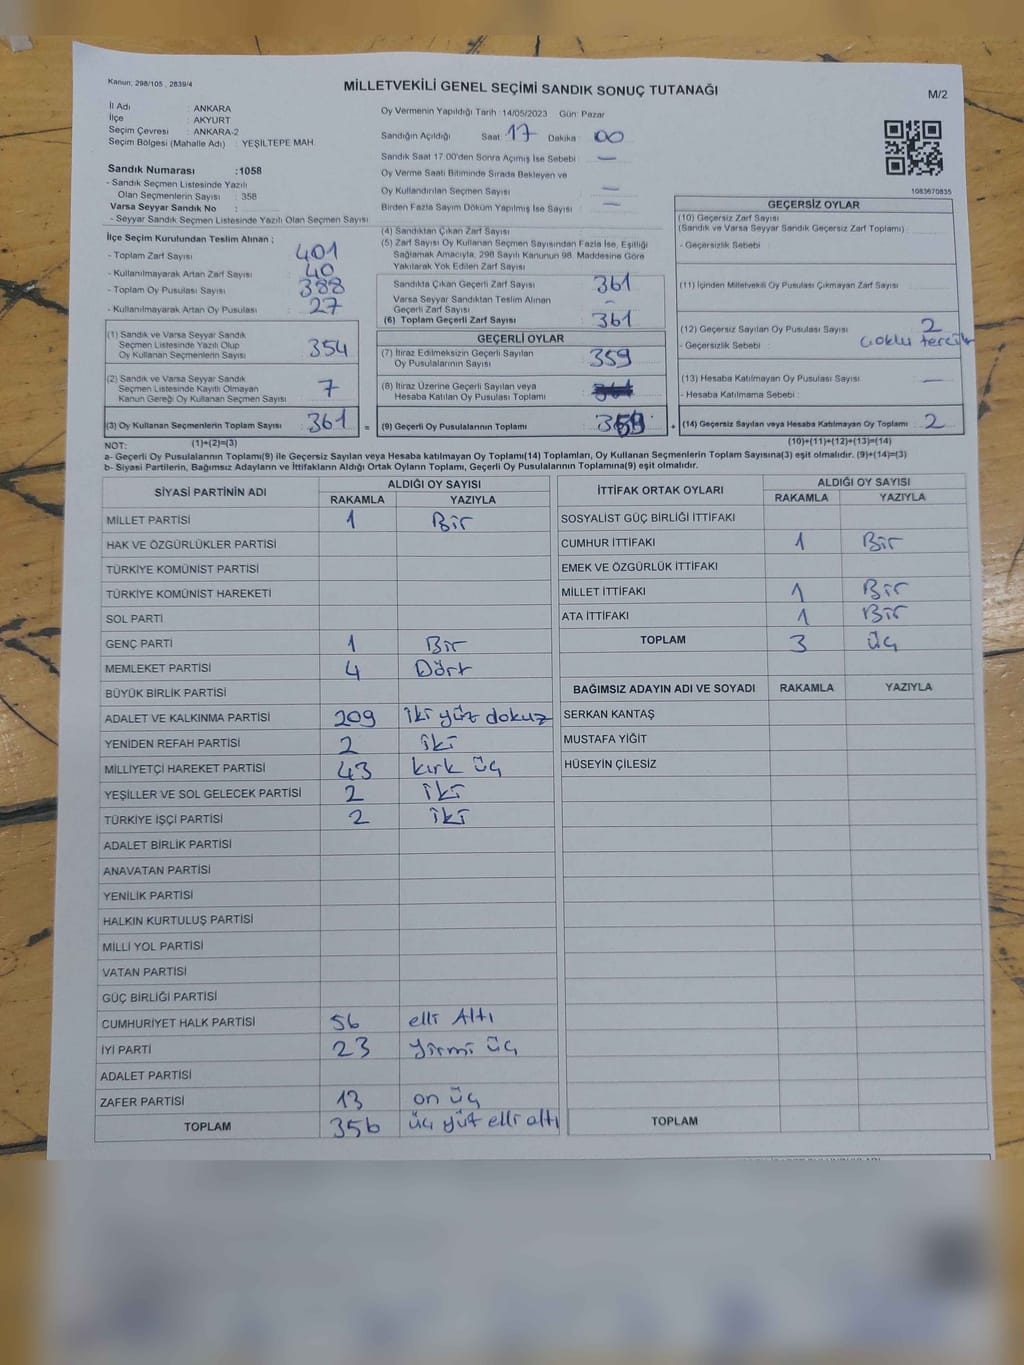 Kanun, 298/105 , 2839/4
MİLLETVEKİLİ GENEL SEÇİMİ SANDIK SONUÇ TUTANAĞI
M/2
İl Adı : ANKARA
İlçe : AKYURT
Seçim Çevresi : ANKARA-2
Seçim Bölgesi (Mahalle Adı) : YEŞİLTEPE MAH.
Sandık Numarası :1058
- Sandık Seçmen Listesinde Yazılı
Olan Seçmenlerin Sayısı : 358
Varsa Seyyar Sandık No :
- Seyyar Sandık Seçmen Listesinde Yazılı Olan Seçmen Sayısı
Oy Vermenin Yapıldığı Tarih :14/05/2023 Gün: Pazar
Sandığın Açıldığı Saat: 17 Dakika : 00
Sandık Saat 17.00'den Sonra Açımış İse Sebebi : —
Oy Verme Saati Bitiminde Sırada Bekleyen ve
Oy Kullandırılan Seçmen Sayısı : —
Birden Fazla Sayım Döküm Yapılmış İse Sayısı : —
1083670835
İlçe Seçim Kurulundan Teslim Alınan ;
- Toplam Zarf Sayısı : 401
- Kullanılmayarak Artan Zarf Sayısı : 40
- Toplam Oy Pusulası Sayısı : 388
- Kullanılmayarak Artan Oy Pusulası : 27
(1) Sandık ve Varsa Seyyar Sandık
Seçmen Listesinde Yazılı Olup
Oy Kullanan Seçmenlerin Sayısı : 354
(2) Sandık ve Varsa Seyyar Sandık
Seçmen Listesinde Kayıtlı Olmayan
Kanun Gereği Oy Kullanan Seçmen Sayısı : 7
(3) Oy Kullanan Seçmenlerin Toplam Sayısı : 361 =
(4) Sandıktan Çıkan Zarf Sayısı :
(5) Zarf Sayısı Oy Kullanan Seçmen Sayısından Fazla İse, Eşitliği
Sağlamak Amacıyla, 298 Sayılı Kanunun 98. Maddesine Göre
Yakılarak Yok Edilen Zarf Sayısı
Sandıkta Çıkan Geçerli Zarf Sayısı : 361
Varsa Seyyar Sandıktan Teslim Alınan
Geçerli Zarf Sayısı : –
(6) Toplam Geçerli Zarf Sayısı : 361
GEÇERLİ OYLAR
(7) İtiraz Edilmeksizin Geçerli Sayılan
Oy Pusulalarının Sayısı : 359
(8) İtiraz Üzerine Geçerli Sayılan veya
Hesaba Katılan Oy Pusulası Toplamı :
(9) Geçerli Oy Pusulalarının Toplamı : 359 +
GEÇERSİZ OYLAR
(10) Geçersiz Zarf Sayısı
(Sandık ve Varsa Seyyar Sandık Geçersiz Zarf Toplamı)
- Geçersizlik Sebebi :
(11) İçinden Milletvekili Oy Pusulası Çıkmayan Zarf Sayısı
(12) Geçersiz Sayılan Oy Pusulası Sayısı : 2
- Geçersizlik Sebebi : çoklu tercih
(13) Hesaba Katılmayan Oy Pusulası Sayısı : —
- Hesaba Katılmama Sebebi :
(14) Geçersiz Sayılan veya Hesaba Katılmayan Oy Toplamı : 2
NOT: (1)+(2)=(3) (10)+(11)+(12)+(13)=(14)
a- Geçerli Oy Pusulalarının Toplamı(9) ile Geçersiz Sayılan veya Hesaba katılmayan Oy Toplamı(14) Toplamları, Oy Kullanan Seçmenlerin Toplam Sayısına(3) eşit olmalıdır. (9)+(14)=(3)
b- Siyasi Partilerin, Bağımsız Adayların ve İttifakların Aldığı Ortak Oyların Toplamı, Geçerli Oy Pusulalarının Toplamına(9) eşit olmalıdır.
SİYASİ PARTİNİN ADI ALDIĞI OY SAYISI
RAKAMLA YAZIYLA
MİLLET PARTİSİ 1 Bir
HAK VE ÖZGÜRLÜKLER PARTİSİ
TÜRKİYE KOMÜNİST PARTİSİ
TÜRKİYE KOMÜNİST HAREKETİ
SOL PARTİ
GENÇ PARTİ 1 Bir
MEMLEKET PARTİSİ 4 Dört
BÜYÜK BİRLİK PARTİSİ
ADALET VE KALKINMA PARTİSİ 209 iki yüz dokuz
YENİDEN REFAH PARTİSİ 2 iki
MİLLİYETÇİ HAREKET PARTİSİ 43 kırk üç
YEŞİLLER VE SOL GELECEK PARTİSİ 2 iki
TÜRKİYE İŞÇİ PARTİSİ 2 iki
ADALET BİRLİK PARTİSİ
ANAVATAN PARTİSİ
YENİLİK PARTİSİ
HALKIN KURTULUŞ PARTİSİ
MİLLİ YOL PARTİSİ
VATAN PARTİSİ
GÜÇ BİRLİĞİ PARTİSİ
CUMHURİYET HALK PARTİSİ 56 elli Altı
İYİ PARTİ 23 yirmi üç
ADALET PARTİSİ
ZAFER PARTİSİ 13 on üç
TOPLAM 356 üç yüz elli altı
İTTİFAK ORTAK OYLARI ALDIĞI OY SAYISI
RAKAMLA YAZIYLA
SOSYALİST GÜÇ BİRLİĞİ İTTİFAKI
CUMHUR İTTİFAKI 1 Bir
EMEK VE ÖZGÜRLÜK İTTİFAKI
MİLLET İTTİFAKI 1 Bir
ATA İTTİFAKI 1 Bir
TOPLAM 3 üç
BAĞIMSIZ ADAYIN ADI VE SOYADI RAKAMLA YAZIYLA
SERKAN KANTAŞ
MUSTAFA YİĞİT
HÜSEYİN ÇİLESİZ
TOPLAM